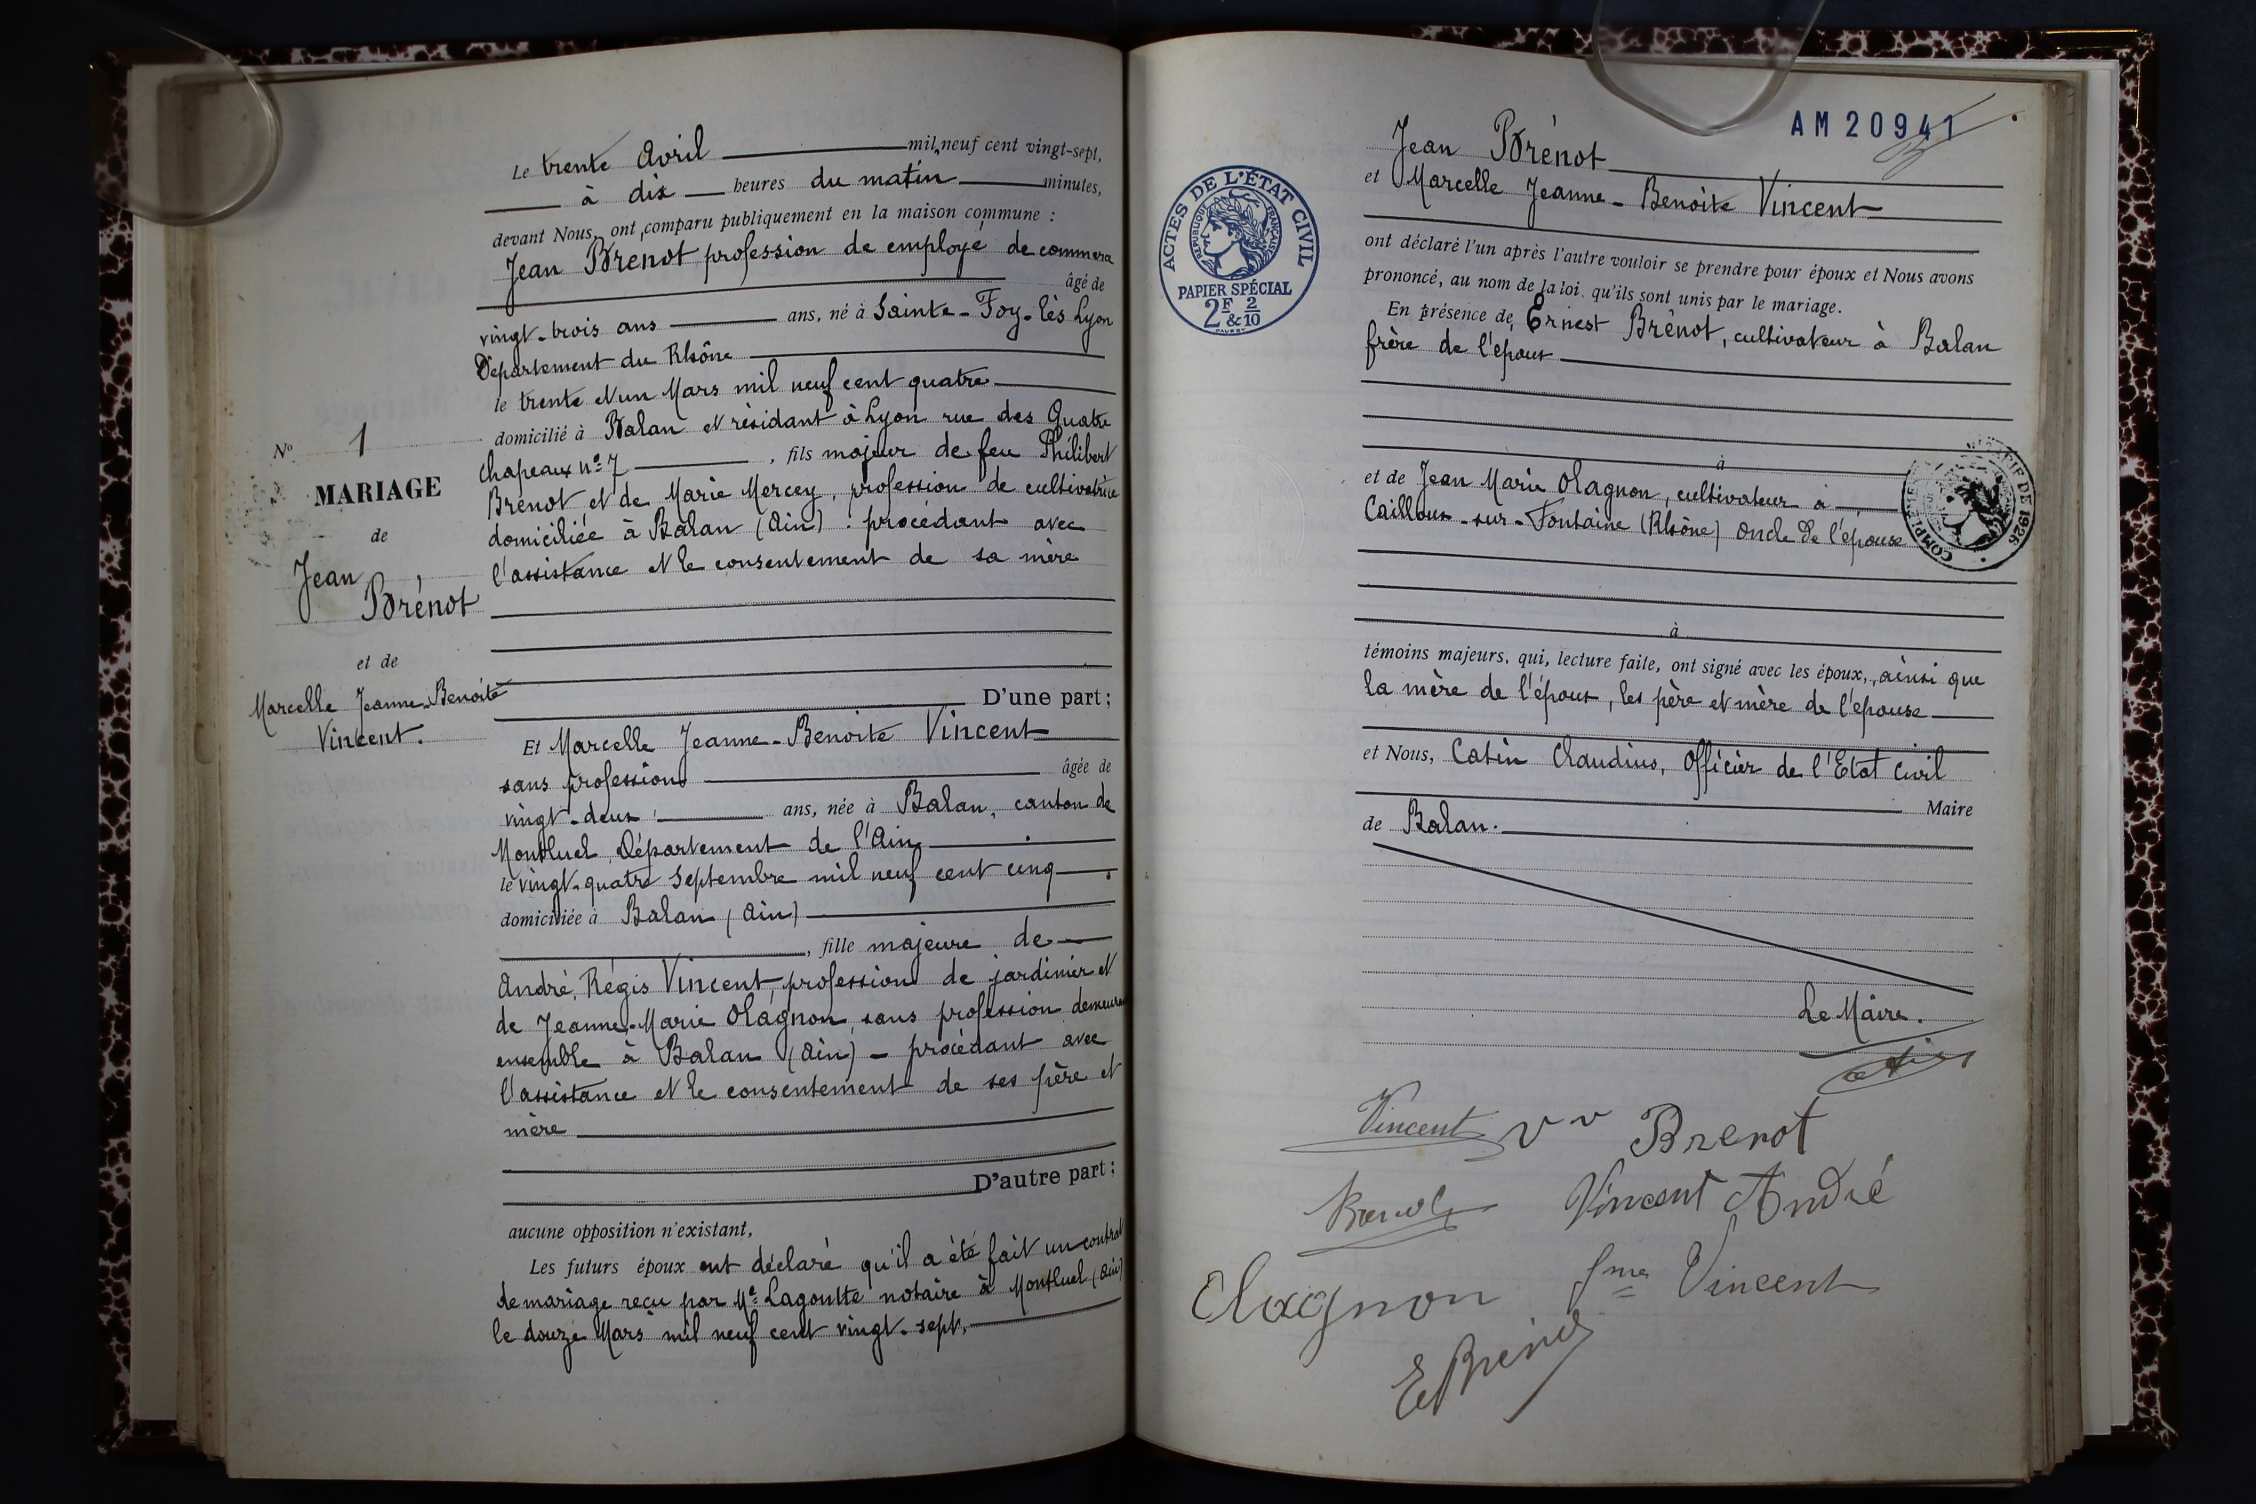 Le trente Avril mil neuf cent vingt-sept,
à dix heures du matin minutes,
devant Nous, ont comparu publiquement en la maison commune :
Jean Brenot profession de employé de commerce
âgé de
vingt-trois ans ans, né à Sainte-Foy-lès Lyon
Département du Rhône
le trente et un Mars mil neuf cent quatre
domicilié à Balan et résidant à Lyon rue des Quatre
Chapeaux nº 7, fils majeur de feu Philibert
Brenot et de Marie Mercey, profession de cultivatrice
domiciliée à Balan (Ain) : procédant avec
l'assistance et le consentement de sa mère
D'une part ;
Nº 1
MARIAGE
de
Jean
Brénot
et de
Marcelle Jeanne-Benoite
Vincent.
Et Marcelle Jeanne-Benoite Vincent
sans profession âgée de
vingt-deux ans, née à Balan, canton de
Montluel, Département de l'Ain
le vingt-quatre Septembre mil neuf cent cinq
domiciliée à Balan (Ain)
, fille majeure de
André, Régis Vincent, profession de jardinier et
de Jeanne-Marie Olagnon, sans profession demeurant
ensemble à Balan (Ain) - procédant avec
l'assistance et le consentement de ses père et
mère
D'autre part ;
aucune opposition n'existant,
Les futurs époux ont déclaré qu'il a été fait un contrat
de mariage reçu par Me Lagoutte notaire à Montluel (Ain)
le douze Mars mil neuf cent vingt-sept,
AM 20941
ACTES DE L'ÉTAT CIVIL
RÉPUBLIQUE FRANÇAISE
PAPIER SPÉCIAL
2F & 2/10
Jean Brénot
et Marcelle Jeanne-Benoite Vincent
ont déclaré l'un après l'autre vouloir se prendre pour époux et Nous avons
prononcé, au nom de la loi, qu'ils sont unis par le mariage.
En présence de Ernest Brénot, cultivateur à Balan
frère de l'époux
à
et de Jean Marie Olagnon, cultivateur à
Cailloux-sur-Fontaine (Rhône) oncle de l'épouse
DE 1926
à
témoins majeurs, qui, lecture faite, ont signé avec les époux, ainsi que
la mère de l'époux, les père et mère de l'épouse
et Nous, Catin Claudius, Officier de l'Etat Civil
Maire
de Balan.
Le Maire.
Catin
Vincent Brenot
Brenot Vincent André
Olagnon fme Vincent
E Brenot